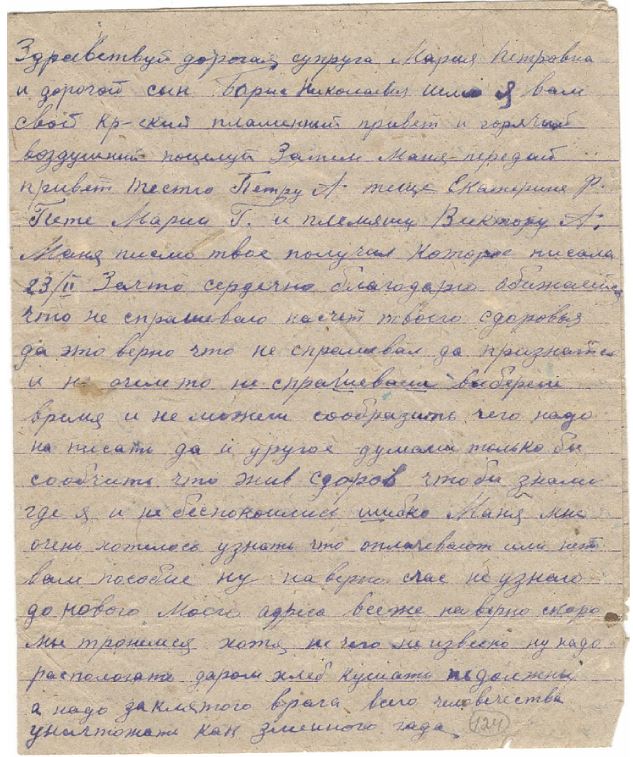 Здравствуй дорогая супруга Мария Петровна
и дорогой сын Борис Николаевич шлю я вам
свой кр-ский пламенный привет и горячий
воздушный поцелуй Затем Маня передай
привет тестю Петру А. теще Екатерине Ф.
Пете Марии Г. и племяшу Виктору А.
Маня писмо твое получил которое писала
23/II Зачто сердечно благодарю обижаешся
что не спрашеваю насчет твоего сдоровья
да это верно что не спрашевал да признатся
и не очим то не спрашеваеш выбереш
время и не можеш сообразить чего надо
на писать да и другое думаеш только бы
сообчить что жив сдоров чтобы знали
где я и не беспокоились шибко Маня мне
очень хотелось узнать что оплачевают или нет
вам пособие ну на верно счас не узнаю
до нового моего адреса всеже на верно скоро
мы тронемся хотя не чего не извесно ну надо
распологать даром хлеб кушать не должны
а надо заклятого врага всего человечества
уничтожать как змеиного гада
124